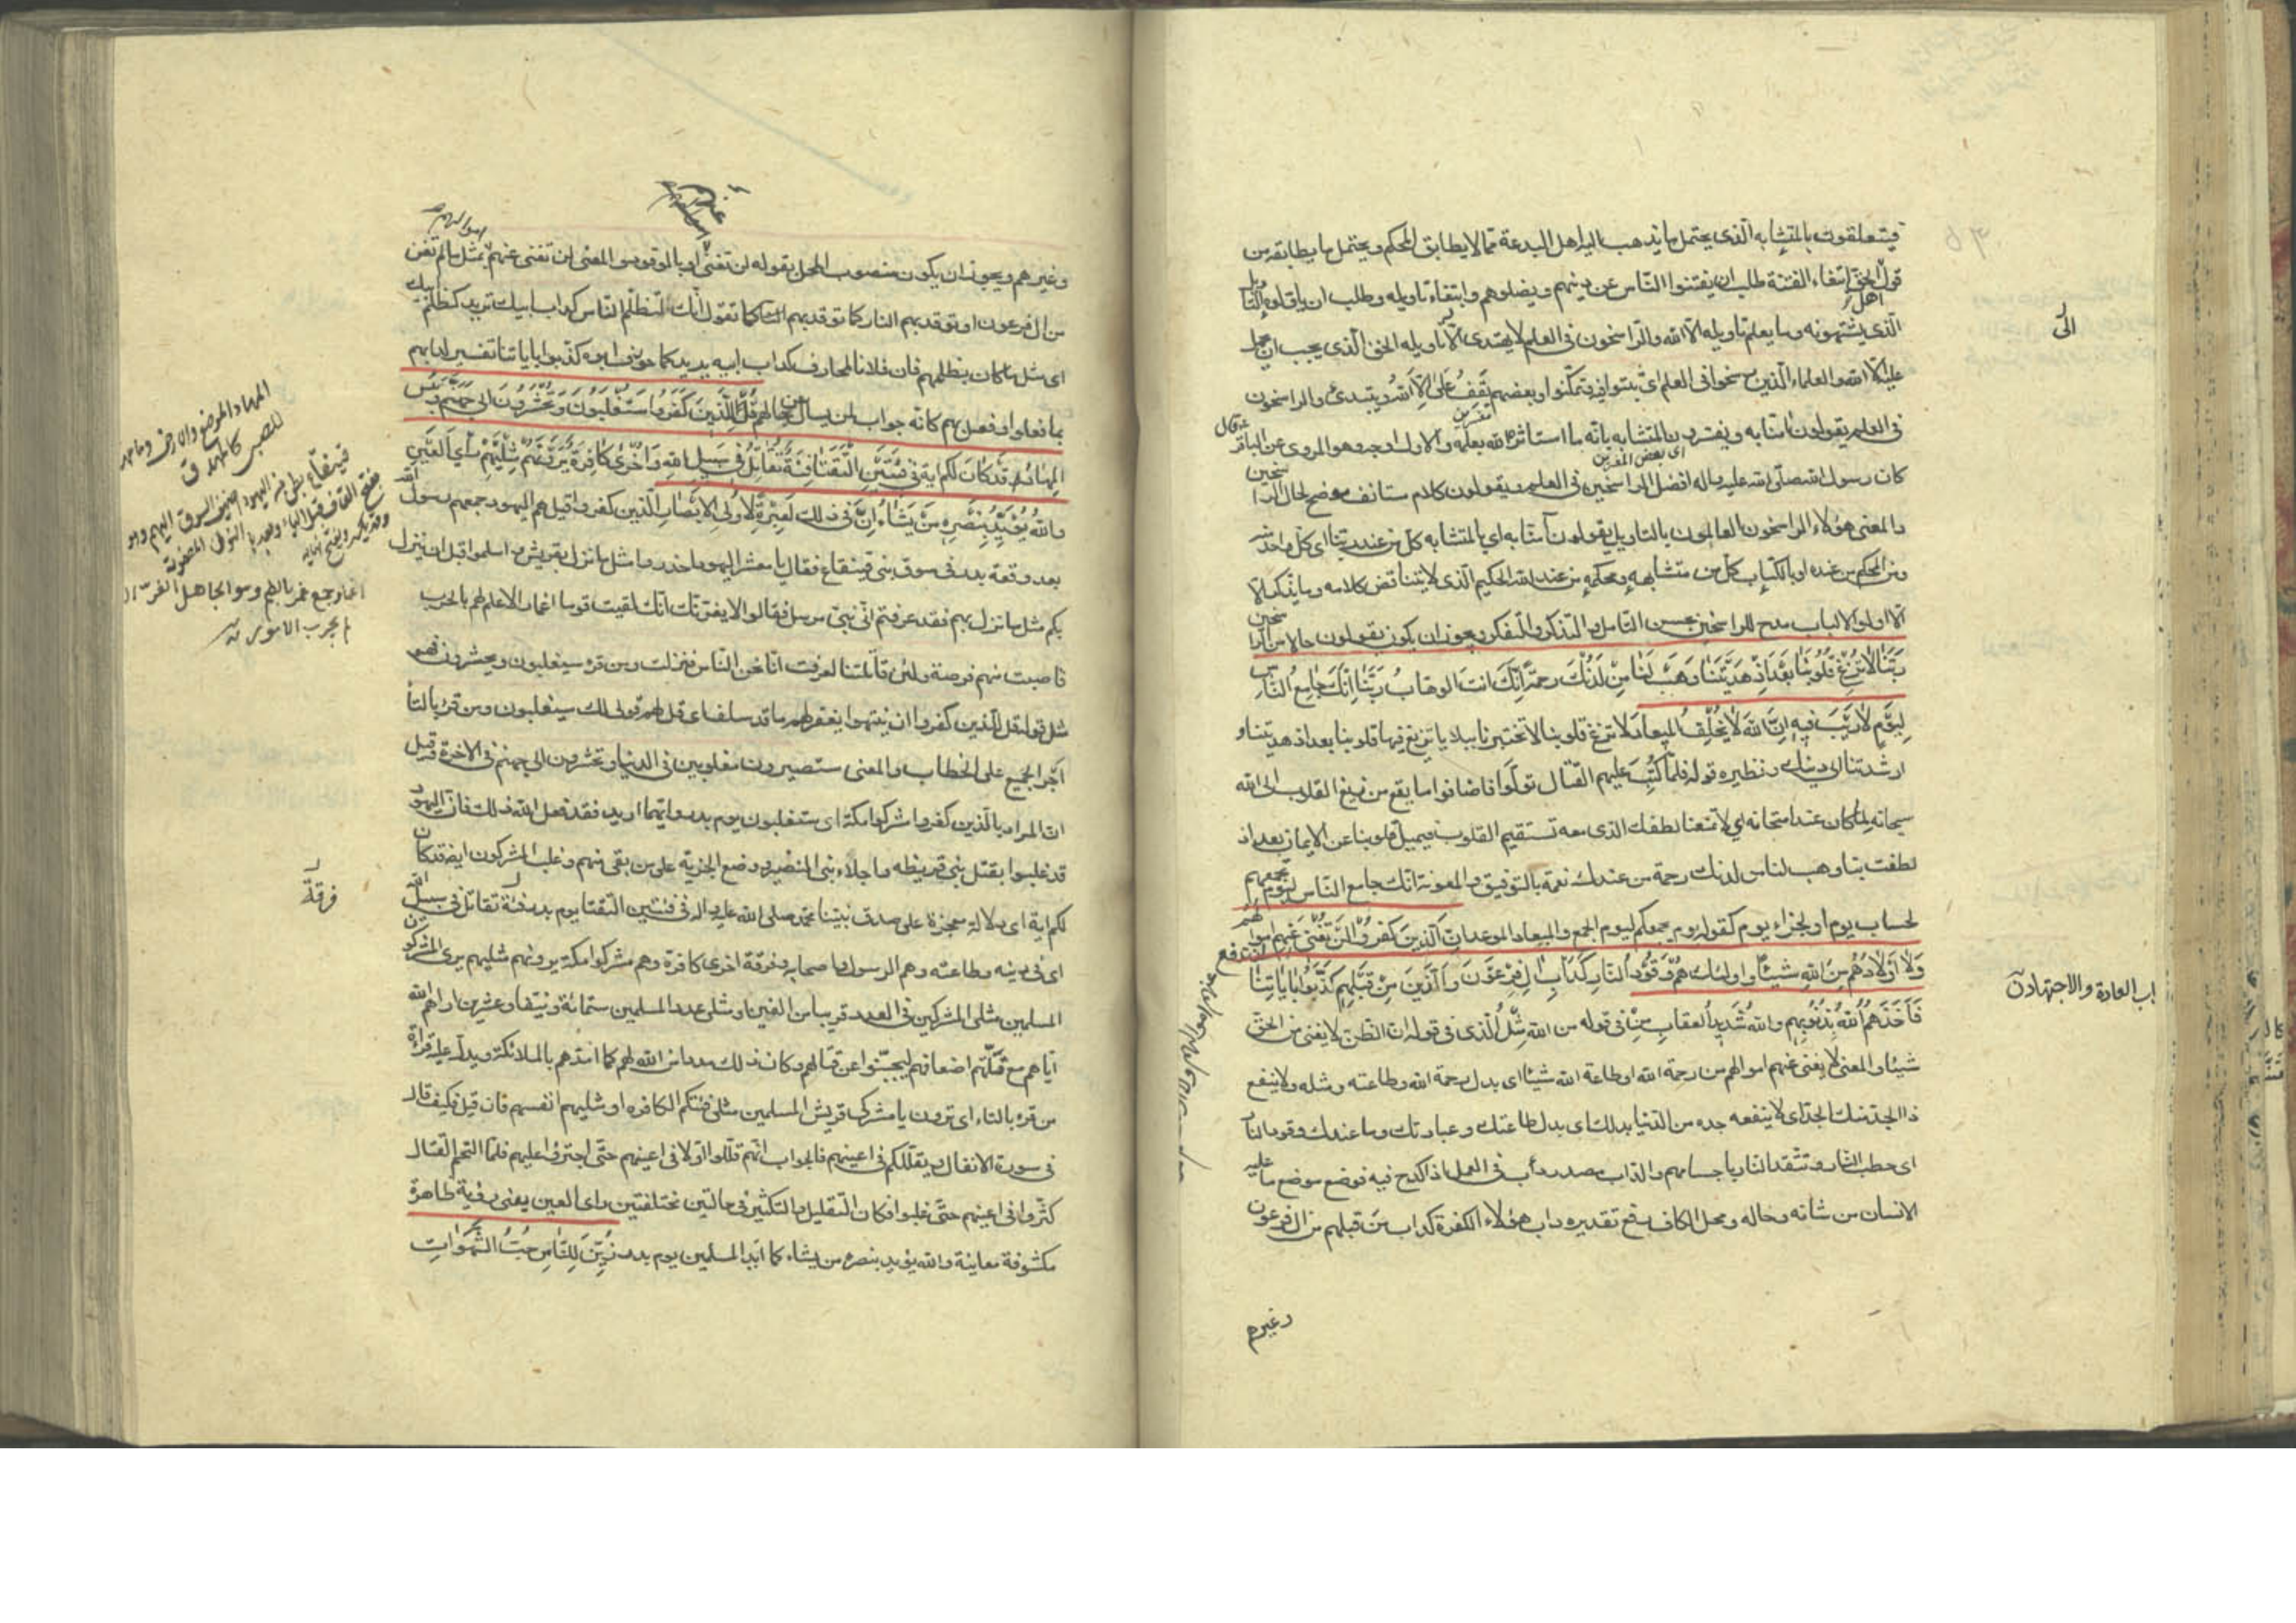 فيتعلقون بالمتشابه الذى يحتمل ما يذهب اليه اهل البدعة مما لا يطابق المحكم ويحتمل ما يطابقه من
قول اهل الحق ابتغاء الفتنة طلب ان يفتنوا الناس عن دينهم ويضلوهم وابتغاء تاويله وطلب ان ياولوه التاويل
الى
الذى يشتهونه وما يعلم تاويله الا الله والراسخون فى العلم لا يهتدى الى تاويله الحق الذى يجب ان يحمل
عليه الا الله والعلماء الذين رسخوا فى العلم اى ثبتوا فيه وتمكنوا وبعضهم يقف على الا الله ويبتدئ والراسخون
فى العلم يقولون امنا به ويفسرون المتشابه بانه ما استاثر الله بعلمه والاول اوجه وهو المروى عن الباقر ع قال
اى بعض المفسرين
كان رسول الله صلى الله عليه واله افضل الراسخين فى العلم ويقولون كلام مستانف موضح لحال الراسخين
والمعنى هؤلاء الراسخون العالمون بالتاويل يقولون آمنا به اى بالمتشابه كل من عند ربنا اى كل واحد منه
ومن المحكم من عنده او بالكتاب كل من متشابهه ومحكمه من عند الله الحكيم الذى لا يتناقض كلامه وما يذكر
الا اولوا الالباب مدح للراسخين بحسن التامل والتذكر والتفكر ويجوز ان يكون يقولون حالا من الراسخين
ربنا لا تزغ قلوبنا بعد اذ هديتنا وهب لنا من لدنك رحمة انك انت الوهاب ربنا انك جامع الناس
ليوم لا ريب فيه ان الله لا يخلف الميعاد لا تزغ قلوبنا لا تختبرنا ببلايا تزيغ فيها قلوبنا بعد اذ هديتنا و
ارشدتنا الى دينك ونظيره قوله فلما كتب عليهم القتال تولوا فاضافوا ما يقع من زيغ القلوب الى الله
سبحانه لما كان عند امتحانه اى لا تمنعنا لطفك الذى معه تستقيم القلوب فيميل قلوبنا عن الايمان بعد اذ
لطفت بنا وهب لنا من لدنك رحمة من عندك نعمة بالتوفيق والمعونة انك جامع الناس ليوم تجمعهم
لحساب يوم او لجزاء يوم كقوله يوم يجمعكم ليوم الجمع والميعاد الموعد ان الذين كفروا لن تغنى عنهم اموالهم
ولا اولادهم من الله شيئا واولئك هم وقود النار كداب ال فرعون والذين من قبلهم كذبوا باياتنا
فاخذهم الله بذنوبهم والله شديد العقاب من فى قوله من الله مثل الذى فى قوله ان الظن لا يغنى من الحق
اب العادة والاجتهاد
شيئا والمعنى لا يغنى عنهم اموالهم من رحمة الله او طاعة الله شيئا اى بدل رحمة الله وطاعته ومثله ولا ينفع
ذا الجد منك الجد اى لا ينفعه جده من الدنيا بدلك اى بدل طاعتك وعبادتك وما عندك وقود النار
اى حطب النار وتتقد النار باجسامهم والداب مصدر دأب فى العمل اذا كدح فيه فوضع موضع ما عليه
الانسان من شانه وحاله ومحل الكاف رفع تقديره داب هؤلاء الكفرة كداب من قبلهم من ال فرعون
وغيرهم
وغيرهم ويجوز ان يكون منصوب المحل بقوله لن تغنى او بالوقود والمعنى لن تغنى عنهم مثل ما لم تغن
من ال فرعون او توقد بهم النار كما توقد بهم كما تقول انك لتظلم الناس كداب ابيك تريد كظلم ابيك
اى مثل ما كان يظلمهم فان فلانا لمحارف كداب ابيه يريد كما حورف ابوه كذبوا باياتنا تفسير لدابهم
بما فعلوا وفعل بهم كانه جواب لمن يسال عن حالهم قل للذين كفروا ستغلبون وتحشرون الى جهنم وبئس
المهاد قد كان لكم اية فى فئتين التقتا فئة تقاتل فى سبيل الله واخرى كافرة يرونهم مثليهم راى العين
والله يؤيد بنصره من يشاء ان فى ذلك لعبرة لاولى الابصار الذين كفروا قيل هم اليهود جمعهم رسول الله
بعد وقعة بدر فى سوق بنى قينقاع فقال يا معشر اليهود احذروا مثل ما نزل بقريش واسلموا قبل ان ينزل
بكم مثل ما نزل بهم فقد عرفتم انى نبى مرسل فقالوا لا يغرنك انك لقيت قوما اغمارا لا علم لهم بالحرب
المهاد الموضع والارض وما مهد
للصبى كالمهد ق
اغمار جمع غمر بالضم وهو الجاهل الغر
لم يجرب الامور
فاصبت منهم فرصة ولئن قاتلتنا لعرفت انا نحن الناس فنزلت ومن قرء سيغلبون ويحشرون فهو
مثل قوله قل للذين كفروا ان ينتهوا يغفر لهم ما قد سلف اى قل لهم قولى لك سيغلبون ومن قرء بالتاء
اجرا الجميع على الخطاب والمعنى ستصيرون مغلوبين فى الدنيا وتحشرون الى جهنم فى الاخرة وقيل
ان المراد بالذين كفروا مشركوا مكة اى ستغلبون يوم بدر وايهما اريد فقد فعل الله ذلك فان اليهود
قد غلبوا بقتل بنى قريظه واجلاء بنى النضير ووضع الجزية على من بقى منهم وغلب المشركون ايضا قد كان
لكم اية اى دلالة معجزة على صدق نبينا محمد صلى الله عليه واله فى فئتين التقتا يوم بدر فئة تقاتل فى سبيل الله
فرقة
اى فى دينه وطاعته وهم الرسول واصحابه وفرقة اخرى كافرة وهم مشركوا مكة يرونهم مثليهم يرى المشركون
المسلمين مثلى المشركين فى العدد قريبا من الفين او مثلى عدد المسلمين ستمائة ونيفا وعشرين اراهم الله
اياهم مع قلتهم اضعافهم ليجبنوا عن قتالهم وكان ذلك مددا من الله لهم كما امدهم بالملائكة ويدل عليه قراءة
من قرء بالتاء اى ترون يا مشركى قريش المسلمين مثلى فئتكم الكافره او مثليهم انفسهم فان قيل فكيف قال
فى سورة الانفال ويقللكم فى اعينهم فالجواب انهم قللوا اولا فى اعينهم حتى اجترؤا عليهم فلما التحم القتال
كثروا فى اعينهم حتى غلبوا فكان التقليل والتكثير فى حالتين مختلفتين راى العين يعنى رؤية ظاهرة
مكشوفة معاينة والله يؤيد بنصره من يشاء كما ايد المسلمين يوم بدر زين للناس حب الشهوات